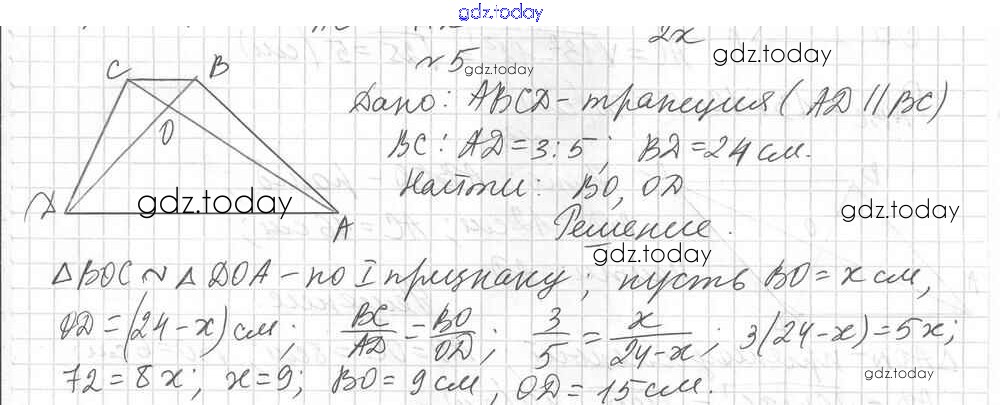 gdz.today
2x
gdz.today
№5 gdz.today
C B
O
D A
Дано: ABCD - трапеция (AD || BC)
BC : AD = 3 : 5; BD = 24 см.
Найти: BO, OD
gdz.today
gdz.today
Решение.
gdz.today
△BOC ~ △DOA - по I признаку; пусть BO = x см,
OD = (24 - x) см; BC/AD = BO/OD; 3/5 = x/24-x; 3(24 - x) = 5x;
72 = 8x; x = 9; BO = 9 см, OD = 15 см.
gdz.today